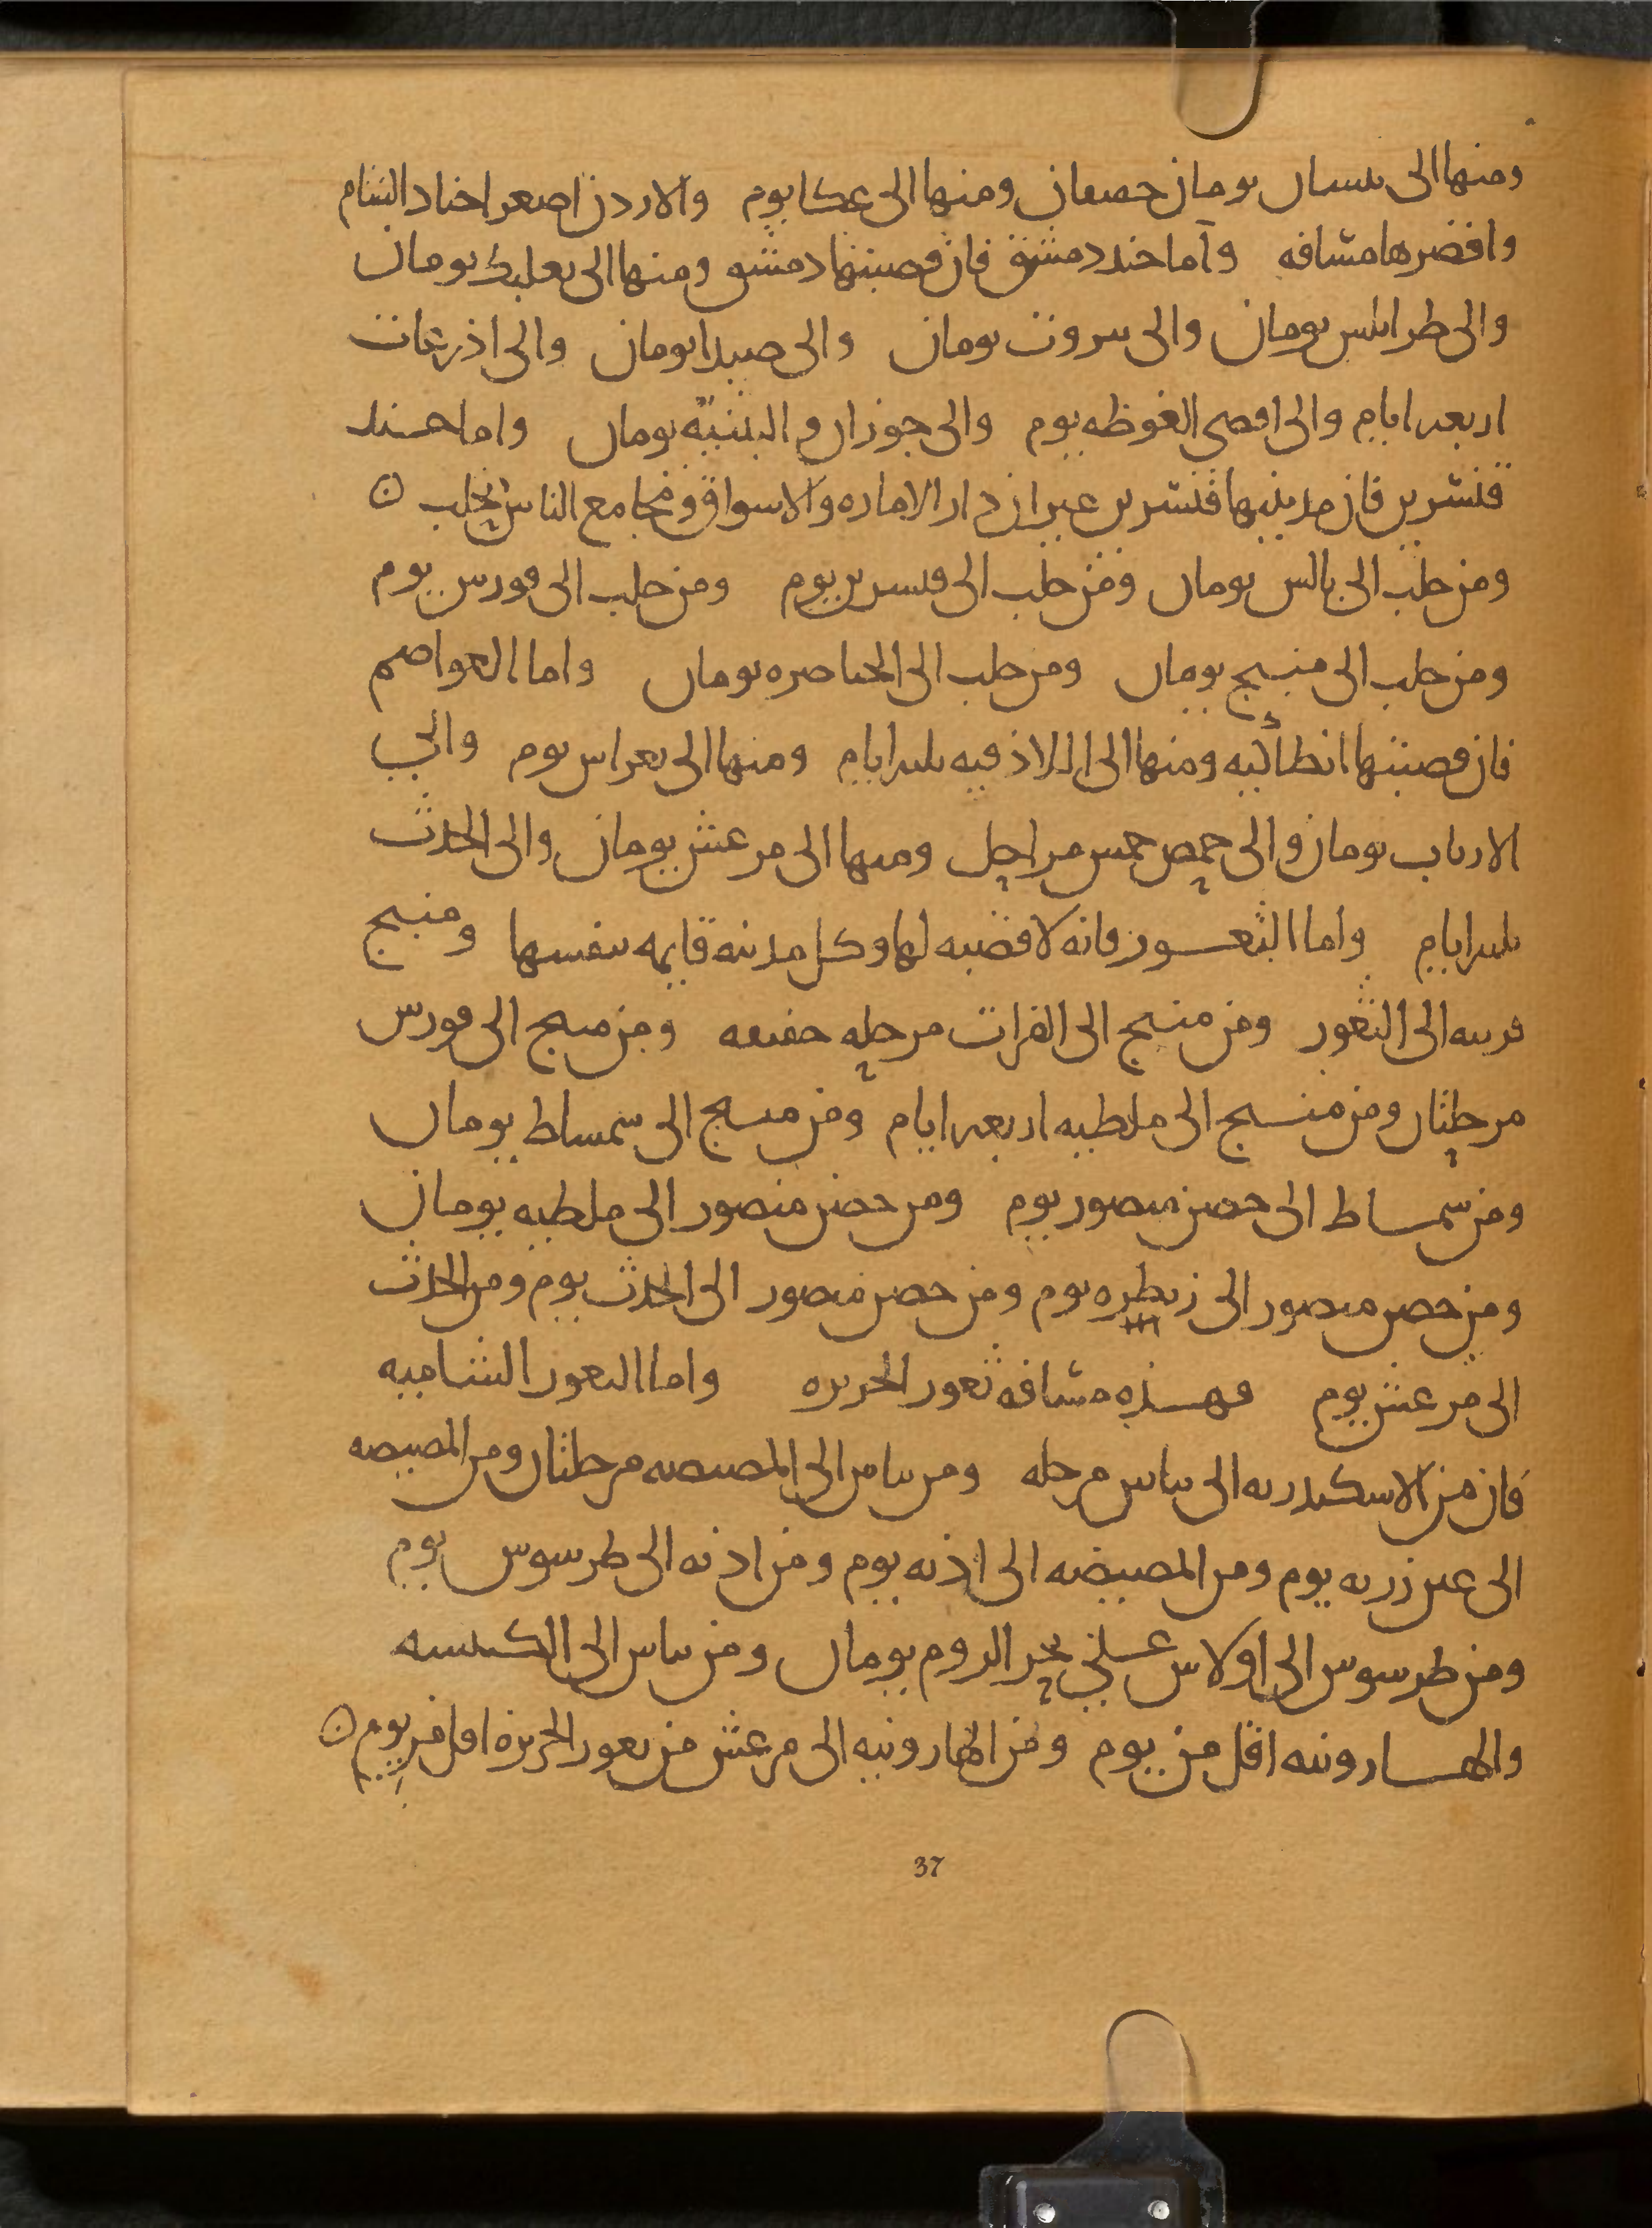 ومنها الى بيسان يومان خفيفان ومنها الى عكا يوم والاردن اصغر اجناد الشام
واقصرها مسافه واما جند دمشق فان قصبتها دمشق ومنها الى بعلبك يومان
والى طرابلس يومان والى بيروت يومان والى صيدا يومان والى اذرعات
اربعه ايام والى اقصى الغوطه يوم والى حوران والبثنيه يومان واما جند
قنسرين فان مدينتها قنسرين غير ان دار الاماره والاسواق ومجامع الناس بحلب ن
ومن حلب الى بالس يومان ومن حلب الى قنسرين يوم ومن حلب الى قورس يوم
ومن حلب الى منبج يومان ومن حلب الى الخناصره يومان واما العواصم
فان قصبتها انطاكيه ومنها الى اللاذقيه ثلثه ايام ومنها الى بغراس يوم والى
الاثارب يومان والى حمص خمس مراحل ومنها الى مرعش يومان والى الحدث
ثلثه ايام واما الثغور فانه لا قصبه لها وكل مدينه قايمه بنفسها ومنبج
قريبه الى الثغور ومن منبج الى الفرات مرحله خفيفه ومن منبج الى قورس
مرحلتان ومن منبج الى ملطيه اربعه ايام ومن منبج الى سمساط يومان
ومن سمساط الى حصن منصور يوم ومن حصن منصور الى ملطيه يومان
ومن حصن منصور الى زبطره يوم ومن حصن منصور الى الحدث يوم ومن الحدث
الى مرعش يوم فهذه مسافه ثغور الجزيره واما الثغور الشاميه
فان من الاسكندريه الى بياس مرحله ومن بياس الى المصيصه مرحلتان ومن المصيصه
الى عين زربه يوم ومن المصيصه الى اذنه يوم ومن اذنه الى طرسوس يوم
ومن طرسوس الى اولاس على بحر الروم يومان ومن بياس الى الكنيسه
والهارونيه اقل من يوم ومن الهارونيه الى مرعش من ثغور الجزيره اقل من يوم ن
37